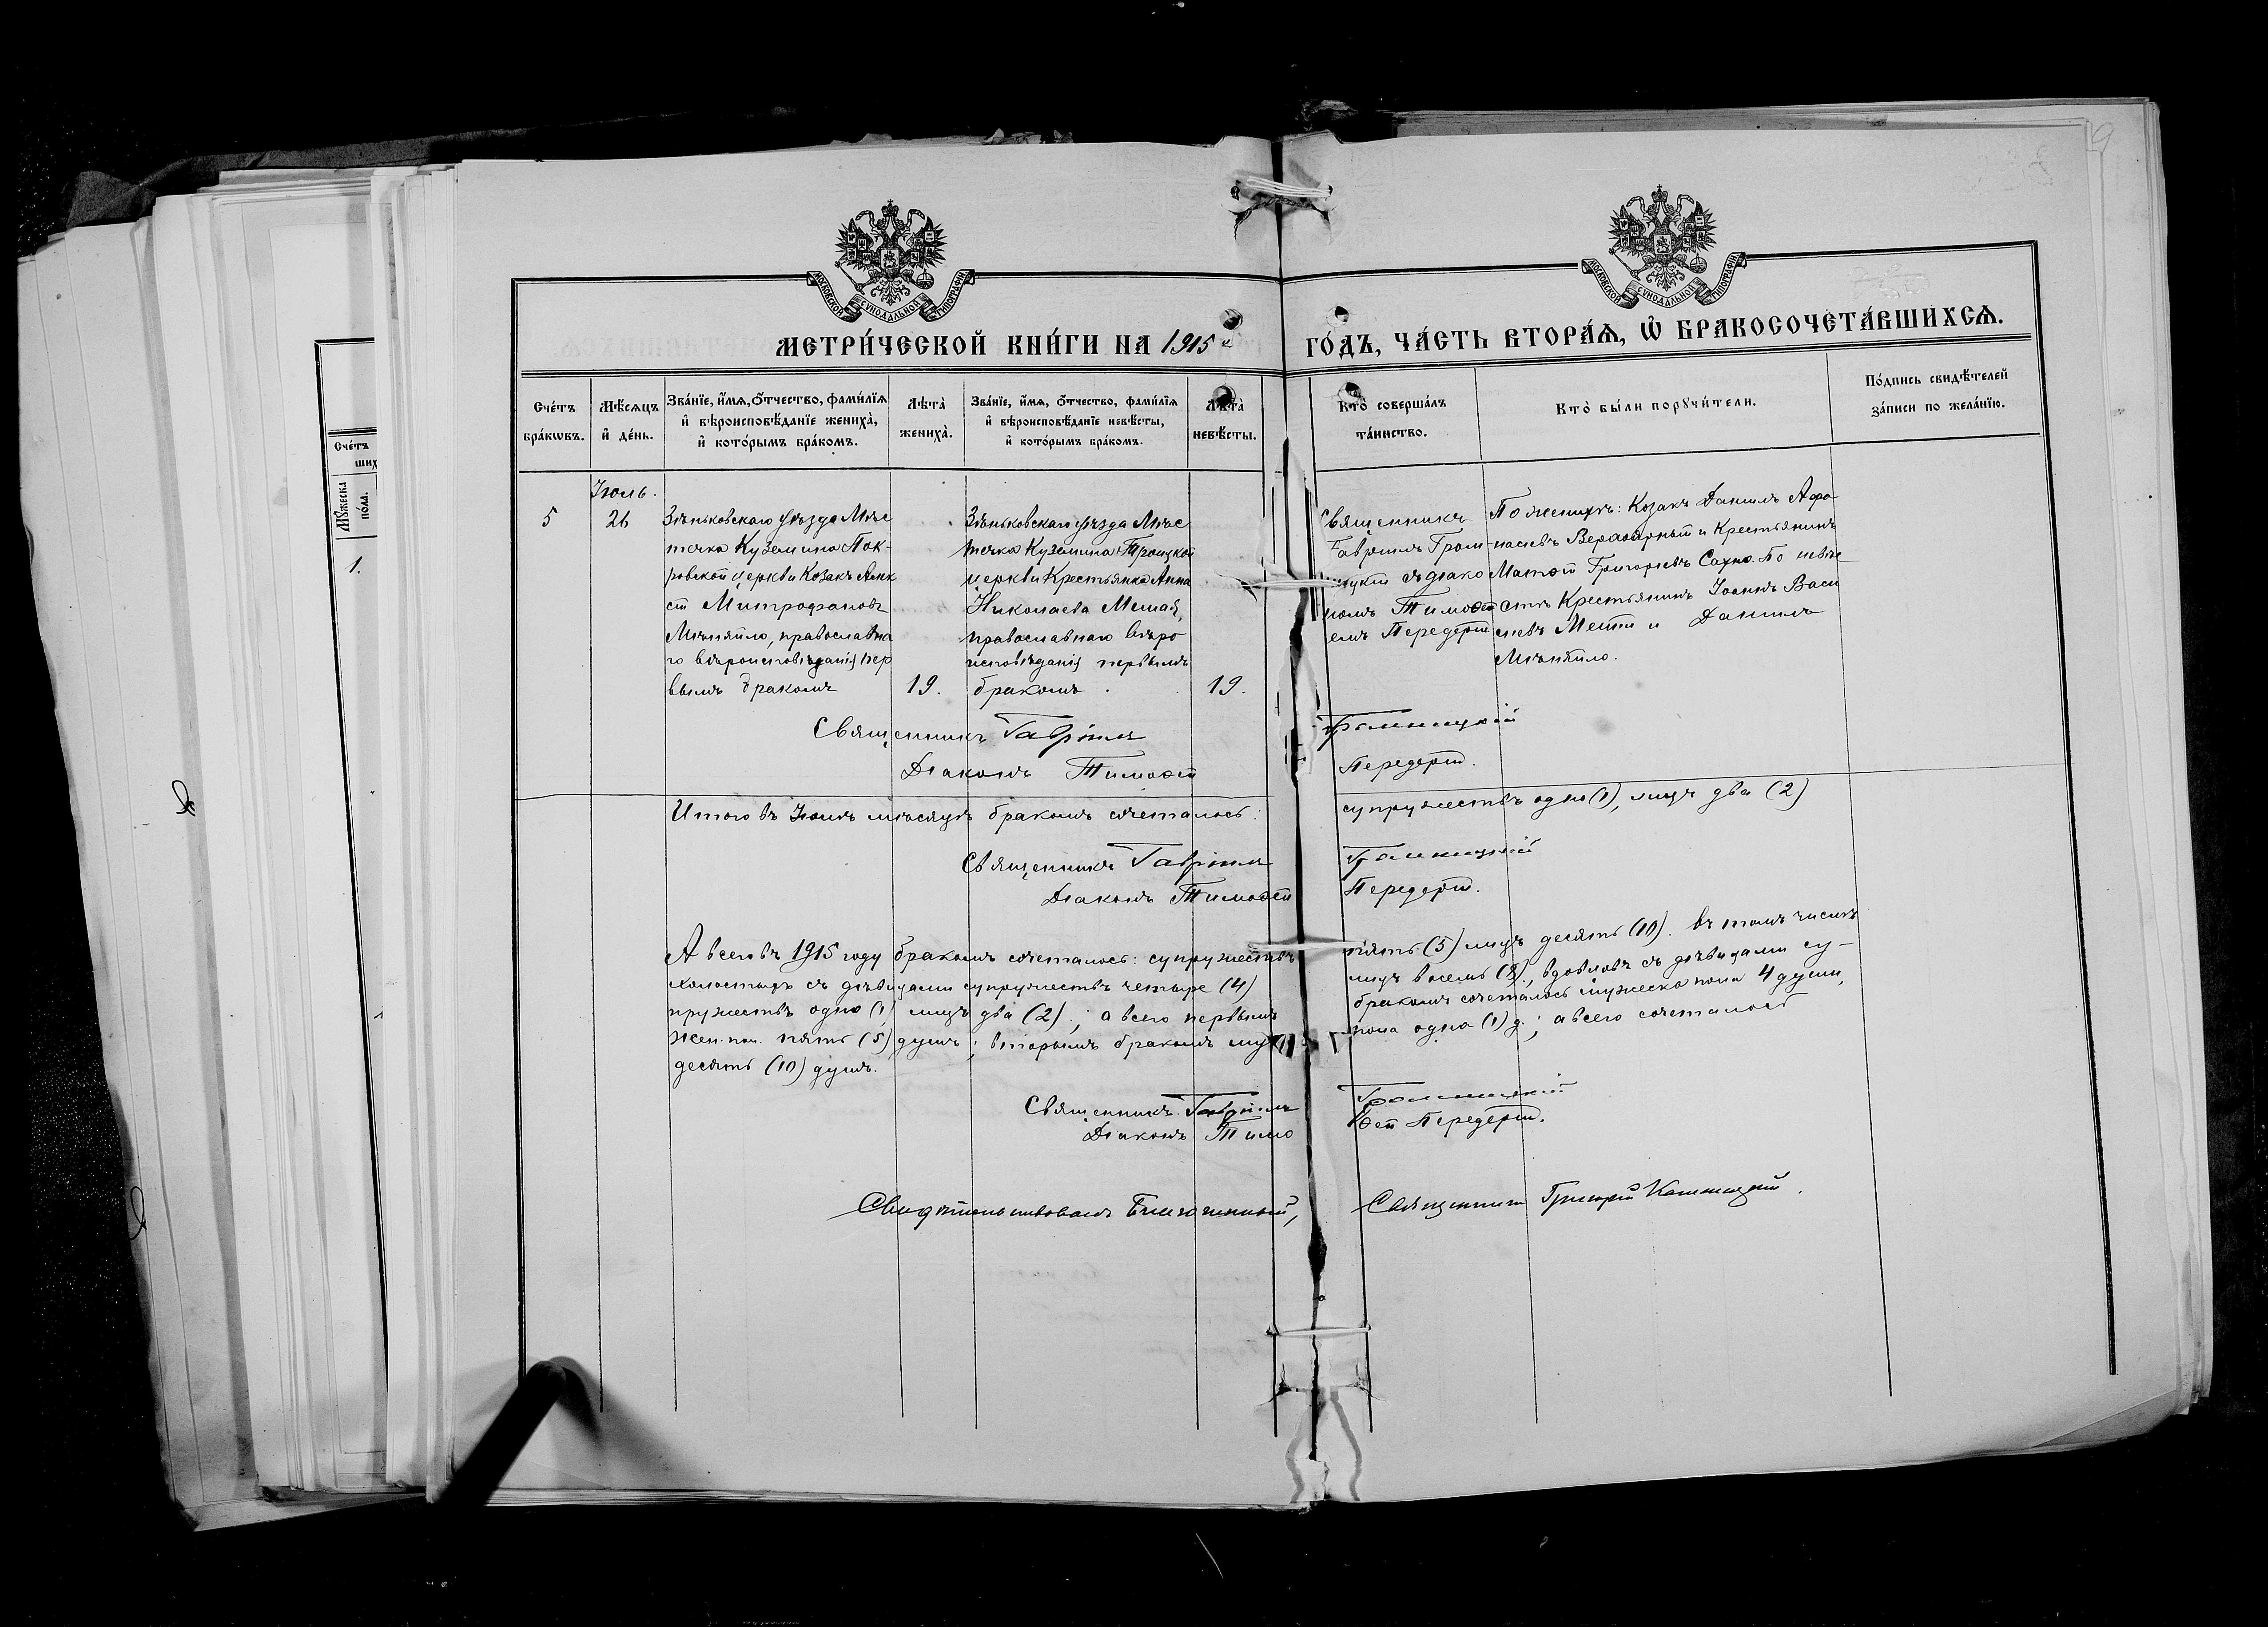 МОСКОВСКОЙ СУНОДАЛЬНОЙ ТИПОГРАФІИ
МОСКОВСКОЙ СУНОДАЛЬНОЙ ТИПОГРАФІИ
МЕТРИ́ЧЕСКОЙ КНИ́ГИ НА 1915 ГО́ДЪ, ЧА́СТЬ ВТОРА́Ѧ, Ѡ҆ БРАКОСОЧЕТА́ВШИХСѦ.
Сче́тъ бра́кѡвъ.
Мѣ́сѧцъ и҆ де́нь.
Зва́нїе, и҆́мѧ, о҆́тчество, фами́лїѧ
и҆ вѣроисповѣ́данїе жениха̀,
и҆ кото́рымъ бра́комъ.
Лѣта̀ жениха̀.
Зва́нїе, и҆́мѧ, о҆́тчество, фами́лїѧ
и҆ вѣроисповѣ́данїе невѣ́сты,
и҆ кото́рымъ бра́комъ.
Лѣта̀ невѣ́сты.
Кто̀ соверша́лъ
та́инство.
Кто̀ бы́ли порꙋчи́тели.
По́дпись свидѣ́телей
за́писи по жела́нїю.
Сче́тъ
ших
Мꙋ́жеска
по́ла.
1.
Іюль.
5
26
Зѣньковскаго уѣзда Мѣс
течка Куземина Пок-
ровской церкви Козакъ Алек
сѣй Митрофановъ
Мѣняйло, православна
го вѣроисповѣданія пер
вымъ бракомъ
19.
Зѣньковскаго уѣзда Мѣс
течка Куземина Троицкой
церкви Крестьянка Анна
Николаева
православнаго вѣро
исповѣданія первымъ
бракомъ.
19.
Священникъ
Гавріилъ
съ діако
номъ Тимофе
емъ Передерій
По женихѣ: Козакъ Даніилъ Афа-
насіевъ и Крестьянинъ
Матѳей Григоріевъ Сахно. По невѣ
стѣ Крестьянинъ Іоаннъ Васи
ліевъ и Даніилъ
Мѣняйло.
Священникъ Гавріилъ
Діаконъ Тимофей Передерій.
Итого въ Іюлѣ мѣсяцѣ бракомъ сочеталось: супружествъ одно (1), лицъ два (2)
Священникъ Гавріилъ
Діаконъ Тимофей Передерій.
А всего въ 1915 году бракомъ сочеталось: супружествъ пять (5) лицъ десять (10). въ томъ числѣ
холостыхъ съ дѣвицами супружествъ четыре (4) лицъ восемь (8), вдовцовъ съ дѣвицами су-
пружествъ одно (1) лицъ два (2).; а всего первымъ бракомъ сочеталось мужеска пола 4 души,
жен. пол. пять (5) душъ; вторымъ бракомъ муж. пола одна (1) д.; а всего сочеталось
десять (10) душъ.
Священникъ Гавріилъ
Діаконъ Тимофей Передерій.
Свидѣтельствовалъ Благочинный, Священникъ Григорій